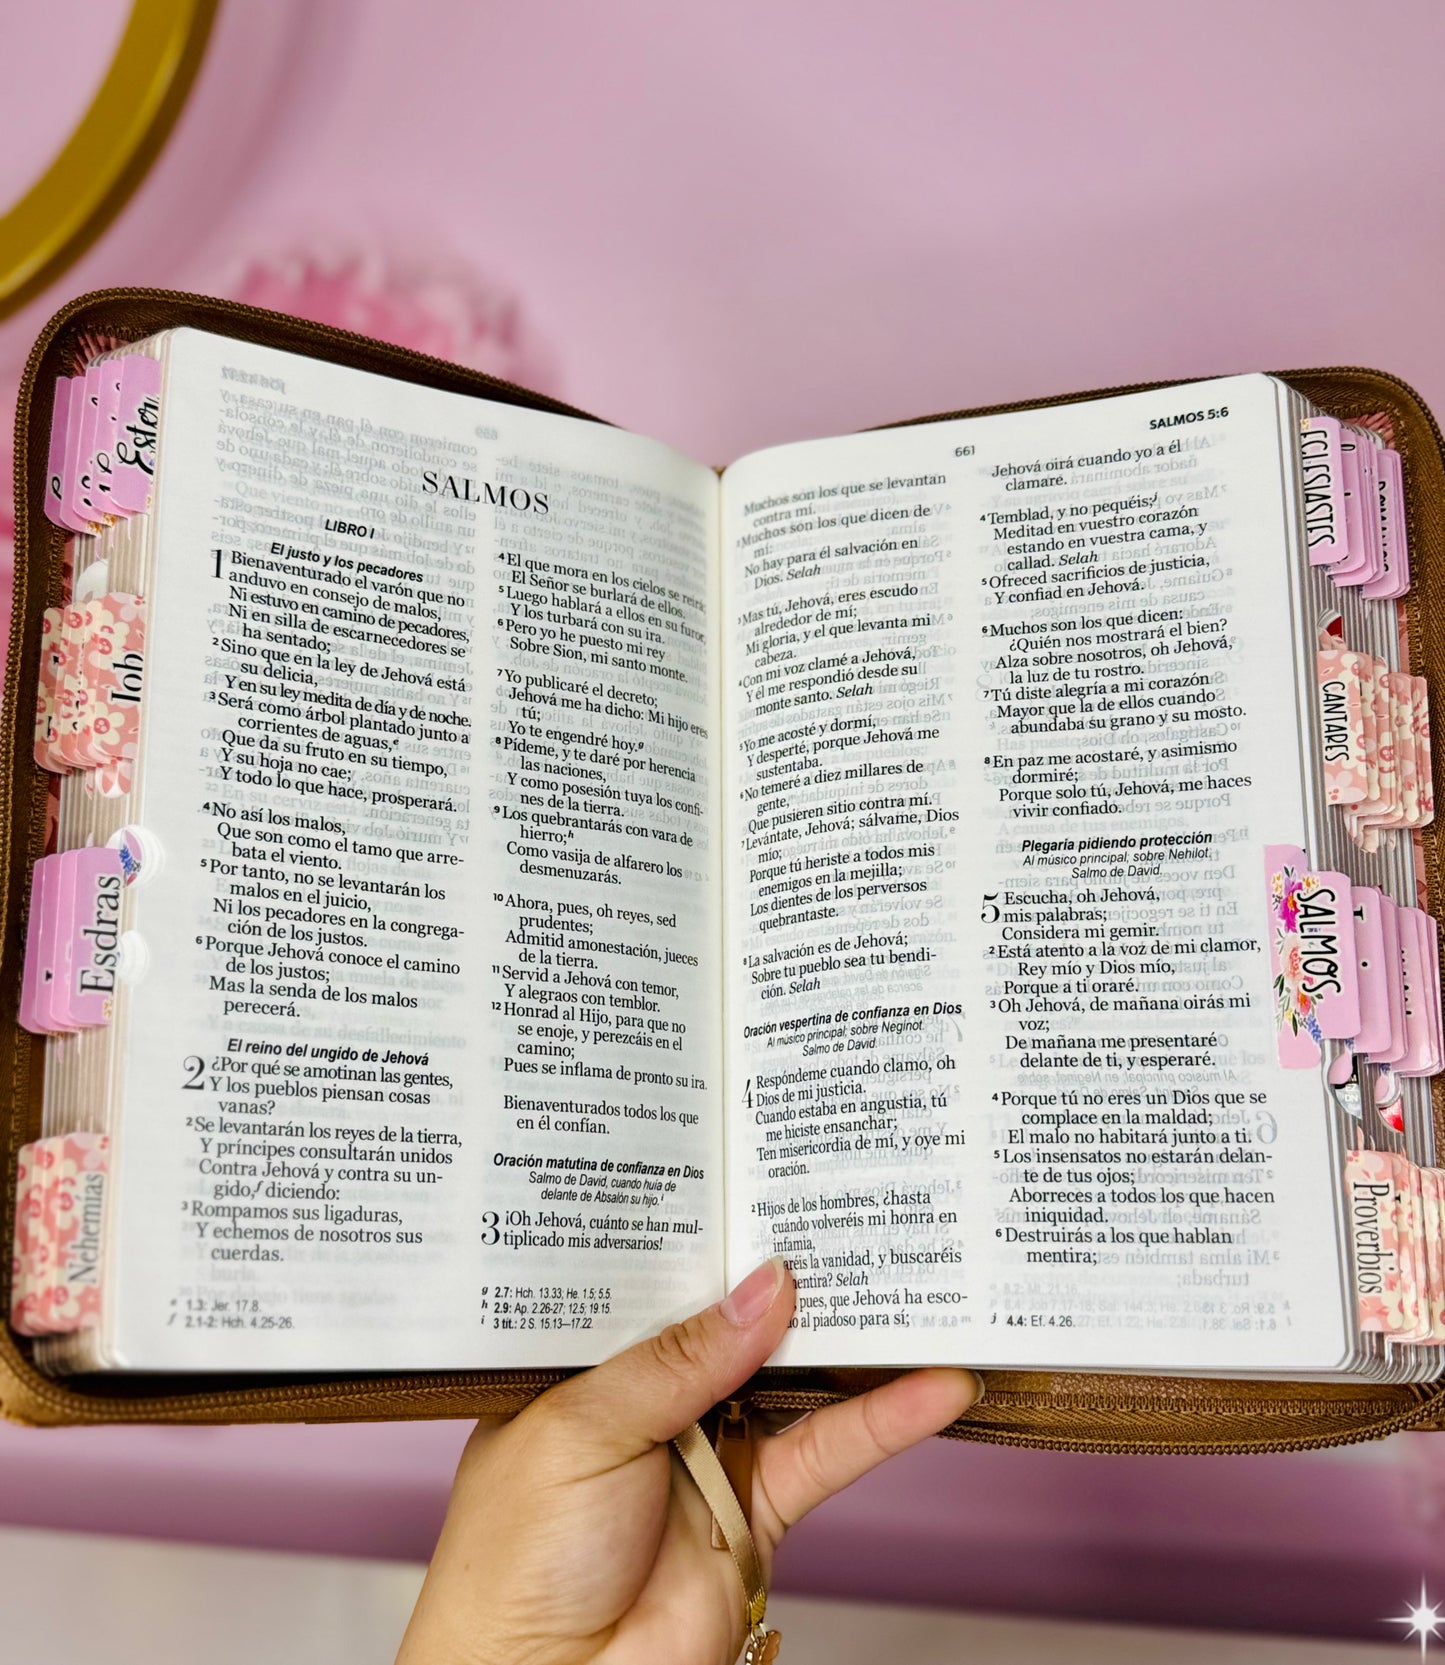 SALMOS
LIBRO I
El justo y los pecadores
1 Bienaventurado el varón que no
anduvo en consejo de malos,
Ni estuvo en camino de pecadores,
Ni en silla de escarnecedores se
ha sentado;
2 Sino que en la ley de Jehová está
su delicia,
Y en su ley medita de día y de noche.
3 Será como árbol plantado junto a
corrientes de aguas,e
Que da su fruto en su tiempo,
Y su hoja no cae;
Y todo lo que hace, prosperará.
4 No así los malos,
Que son como el tamo que arre-
bata el viento.
5 Por tanto, no se levantarán los
malos en el juicio,
Ni los pecadores en la congrega-
ción de los justos.
6 Porque Jehová conoce el camino
de los justos;
Mas la senda de los malos
perecerá.
El reino del ungido de Jehová
2 ¿Por qué se amotinan las gentes,
Y los pueblos piensan cosas
vanas?
2 Se levantarán los reyes de la tierra,
Y príncipes consultarán unidos
Contra Jehová y contra su un-
gido,f diciendo:
3 Rompamos sus ligaduras,
Y echemos de nosotros sus
cuerdas.
e 1.3: Jer. 17.8.
f 2.1-2: Hch. 4.25-26.
4 El que mora en los cielos se reirá;
El Señor se burlará de ellos.
5 Luego hablará a ellos en su furor,
Y los turbará con su ira.
6 Pero yo he puesto mi rey
Sobre Sion, mi santo monte.
7 Yo publicaré el decreto;
Jehová me ha dicho: Mi hijo eres
tú;
Yo te engendré hoy.g
8 Pídeme, y te daré por herencia
las naciones,
Y como posesión tuya los confi-
nes de la tierra.
9 Los quebrantarás con vara de
hierro;h
Como vasija de alfarero los
desmenuzarás.
10 Ahora, pues, oh reyes, sed
prudentes;
Admitid amonestación, jueces
de la tierra.
11 Servid a Jehová con temor,
Y alegraos con temblor.
12 Honrad al Hijo, para que no
se enoje, y perezcáis en el
camino;
Pues se inflama de pronto su ira.
Bienaventurados todos los que
en él confían.
Oración matutina de confianza en Dios
Salmo de David, cuando huía de
delante de Absalón su hijo.i
3 ¡Oh Jehová, cuánto se han mul-
tiplicado mis adversarios!
g 2.7: Hch. 13.33; He. 1.5; 5.5.
h 2.9: Ap. 2.26-27; 12.5; 19.15.
i 3 tít.: 2 S. 15.13—17.22.
661
SALMOS 5:6
Muchos son los que se levantan
contra mí.
2 Muchos son los que dicen de
mí:
No hay para él salvación en
Dios. Selah
3 Mas tú, Jehová, eres escudo
alrededor de mí;
Mi gloria, y el que levanta mi
cabeza.
4 Con mi voz clamé a Jehová,
Y él me respondió desde su
monte santo. Selah
5 Yo me acosté y dormí,
Y desperté, porque Jehová me
sustentaba.
6 No temeré a diez millares de
gente,
Que pusieren sitio contra mí.
7 Levántate, Jehová; sálvame, Dios
mío;
Porque tú heriste a todos mis
enemigos en la mejilla;
Los dientes de los perversos
quebrantaste.
8 La salvación es de Jehová;
Sobre tu pueblo sea tu bendi-
ción. Selah
Oración vespertina de confianza en Dios
Al músico principal; sobre Neginot.
Salmo de David.
4 Respóndeme cuando clamo, oh
Dios de mi justicia.
Cuando estaba en angustia, tú
me hiciste ensanchar;
Ten misericordia de mí, y oye mi
oración.
2 Hijos de los hombres, ¿hasta
cuándo volveréis mi honra en
infamia,
la vanidad, y buscaréis
Selah
pues, que Jehová ha esco-
al piadoso para sí;
Jehová oirá cuando yo a él
clamaré.
4 Temblad, y no pequéis;j
Meditad en vuestro corazón
estando en vuestra cama, y
callad. Selah
5 Ofreced sacrificios de justicia,
Y confiad en Jehová.
6 Muchos son los que dicen:
¿Quién nos mostrará el bien?
Alza sobre nosotros, oh Jehová,
la luz de tu rostro.
7 Tú diste alegría a mi corazón
Mayor que la de ellos cuando
abundaba su grano y su mosto.
8 En paz me acostaré, y asimismo
dormiré;
Porque solo tú, Jehová, me haces
vivir confiado.
Plegaria pidiendo protección
Al músico principal; sobre Nehilot.
Salmo de David.
5 Escucha, oh Jehová,
mis palabras;
Considera mi gemir.
2 Está atento a la voz de mi clamor,
Rey mío y Dios mío,
Porque a ti oraré.
3 Oh Jehová, de mañana oirás mi
voz;
De mañana me presentaré
delante de ti, y esperaré.
4 Porque tú no eres un Dios que se
complace en la maldad;
El malo no habitará junto a ti.
5 Los insensatos no estarán delan-
te de tus ojos;
Aborreces a todos los que hacen
iniquidad.
6 Destruirás a los que hablan
mentira;
j 4.4: Ef. 4.26.
Ester
Job
Esdras
Nehemías
ECLESIASTES
CANTARES
SALMOS
Proverbios